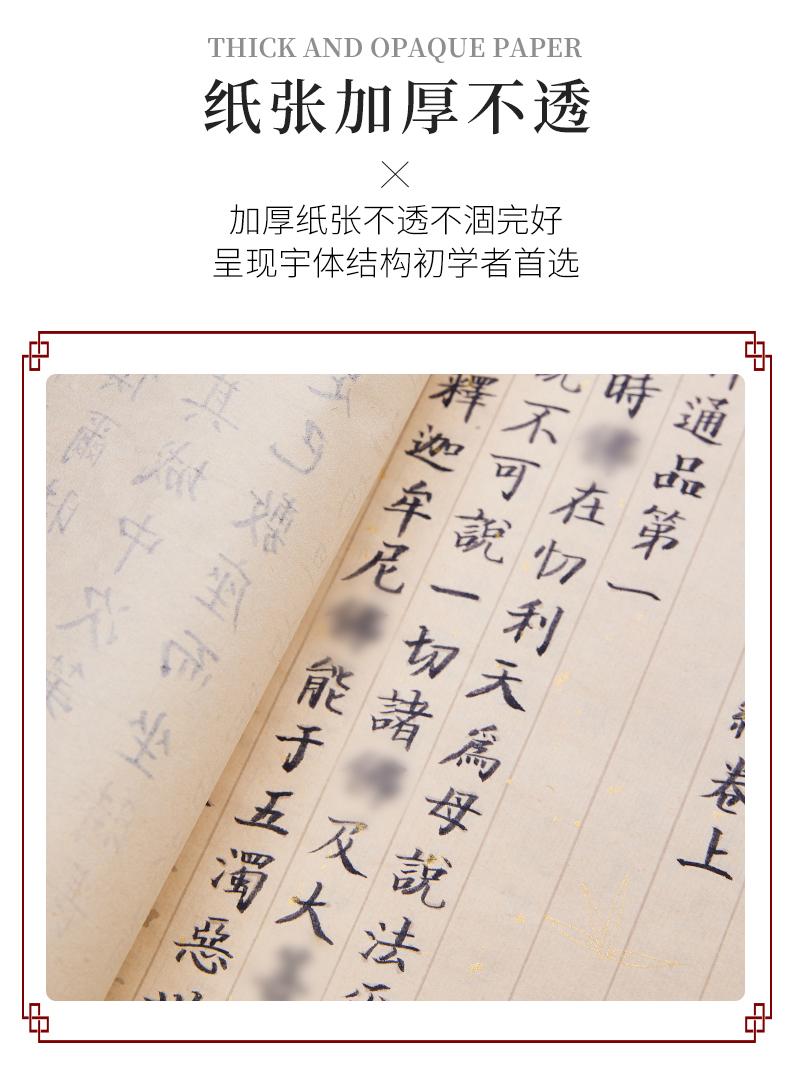 THICK AND OPAQUE PAPER
纸张加厚不透
加厚纸张不透不涸完好
呈现宇体结构初学者首选
卷上
通品第一
時在忉利天爲母說法
不可說一切諸及大
釋迦牟尼能于五濁惡